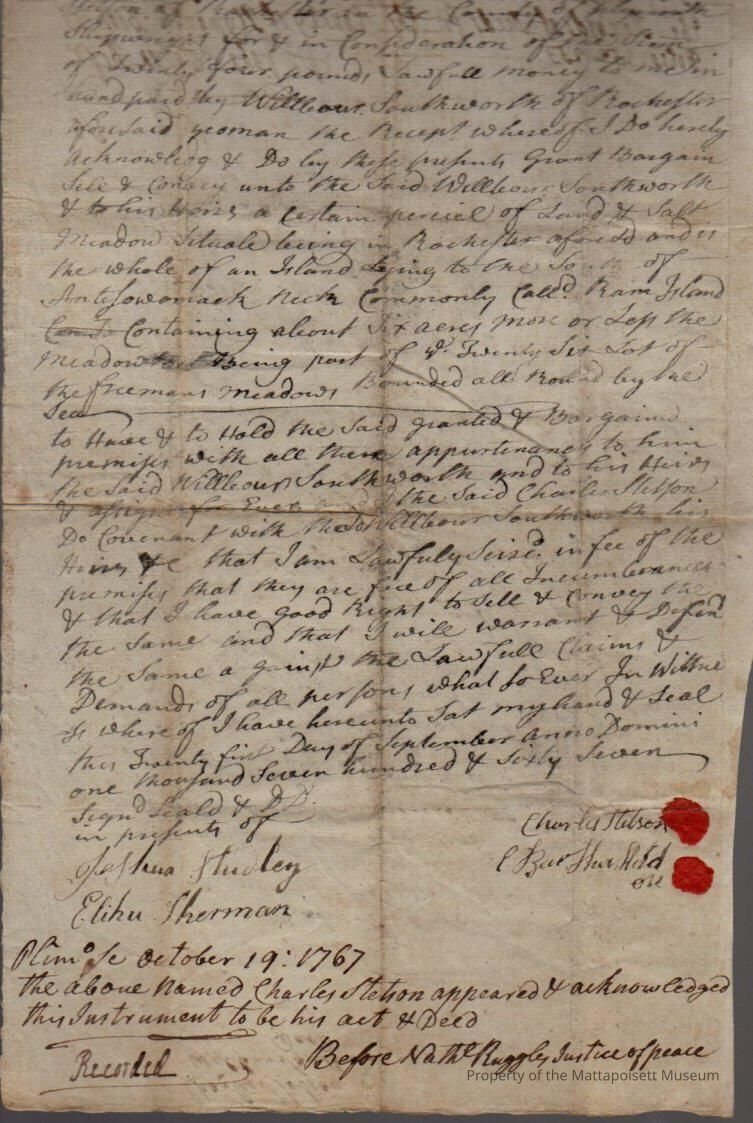 Stetson of Rochester in the County of Plymouth
Shipwright for & in Consideration of the Sum
of Twenty four pounds Lawfull money to me in
hand paid by Willbour Southworth of Rochester
aforesaid yeoman the Recept whereof I Do hereby
acknowledg & Do by these presents Grant Bargain
Sele & Convey unto the Said Willbour Southworth
& to his Heirs a Certain perciel of Land & Salt
Meadow Situate being in Rochester aforesd and is
the whole of an Island Lying to the South of
Antisowomack Neck Commonly Calld. Ram Island
Containing about Six acres more or Less the
Meadow Being part of ye. Twenty Six Lot of
the freemans meadows Bounded all Round by the
Sea
to Have & to Hold the Said granted & Bargained
premises with all there appurtenances to him
the Said Willbour Southworth and to his Heirs
& assigns for Ever and I the Said Charles Stetson
Do Covenant with the Sd Willbour Southworth his
Heirs &c that I am Lawfuly Seizd. in fee of the
premises that they are free of all Incumbrances
& that I have good Right to Sell & Convey the
the Same and that I will warrant & Defend
the Same a gainst the Lawfull Claims &
Demands of all persons what So Ever In Wittne
ss where of I have hereunto Sat my hand & Seal
this Twenty first Day of September anno Domini
one thousand Seven hundred & Sixty Seven
Signd Seald & DD.
in presents of
Charles Stetson
Joshua Studley
Elihu Sherman
Plimo Sc October 19: 1767
the above Named Charles Stetson appeared & acknowledged
this Instrument to be his act & Deed
Before Nathl Ruggles Justice of peace
Recorded
Property of the Mattapoisett Museum